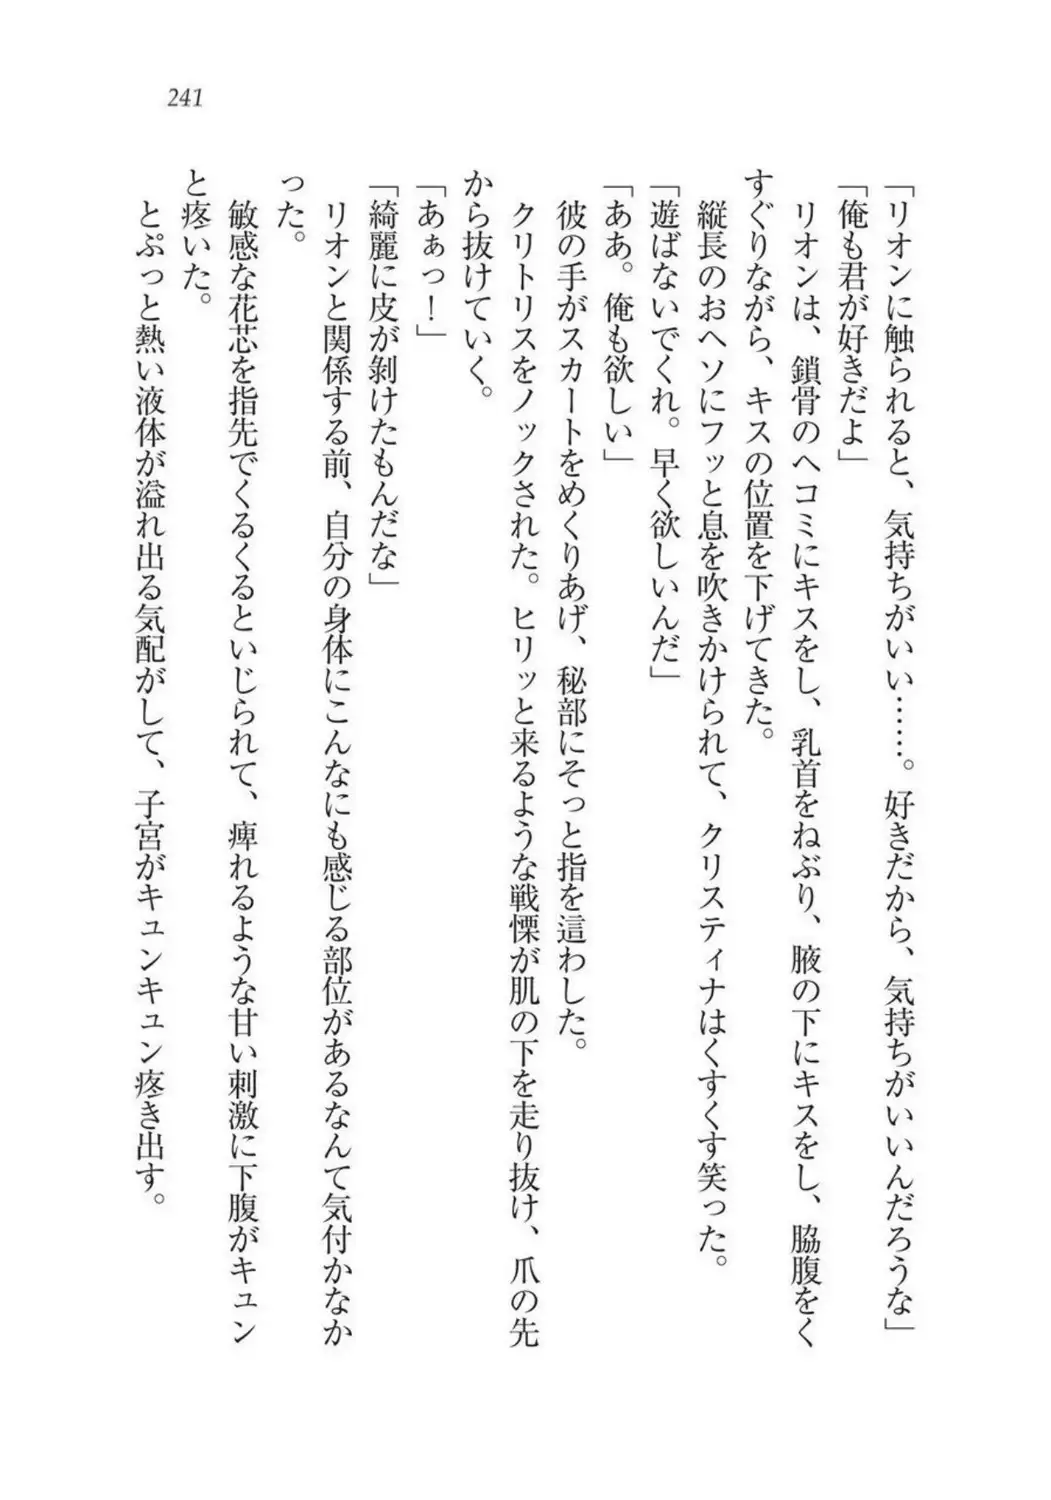 241
「リオンに触られると、気持ちがいい……。好きだから、気持ちがいいんだろうな」
「俺も君が好きだよ」
　リオンは、鎖骨のヘコミにキスをし、乳首をねぶり、腋の下にキスをし、脇腹をく
すぐりながら、キスの位置を下げてきた。
　縦長のおヘソにフッと息を吹きかけられて、クリスティナはくすくす笑った。
「遊ばないでくれ。早く欲しいんだ」
「ああ。俺も欲しい」
　彼の手がスカートをめくりあげ、秘部にそっと指を這わした。
　クリトリスをノックされた。ヒリッと来るような戦慄が肌の下を走り抜け、爪の先
から抜けていく。
「あぁっ！」
「綺麗に皮が剝けたもんだな」
　リオンと関係する前、自分の身体にこんなにも感じる部位があるなんて気付かなか
った。
　敏感な花芯を指先でくるくるといじられて、痺れるような甘い刺激に下腹がキュン
と疼いた。
　とぷっと熱い液体が溢れ出る気配がして、子宮がキュンキュン疼き出す。